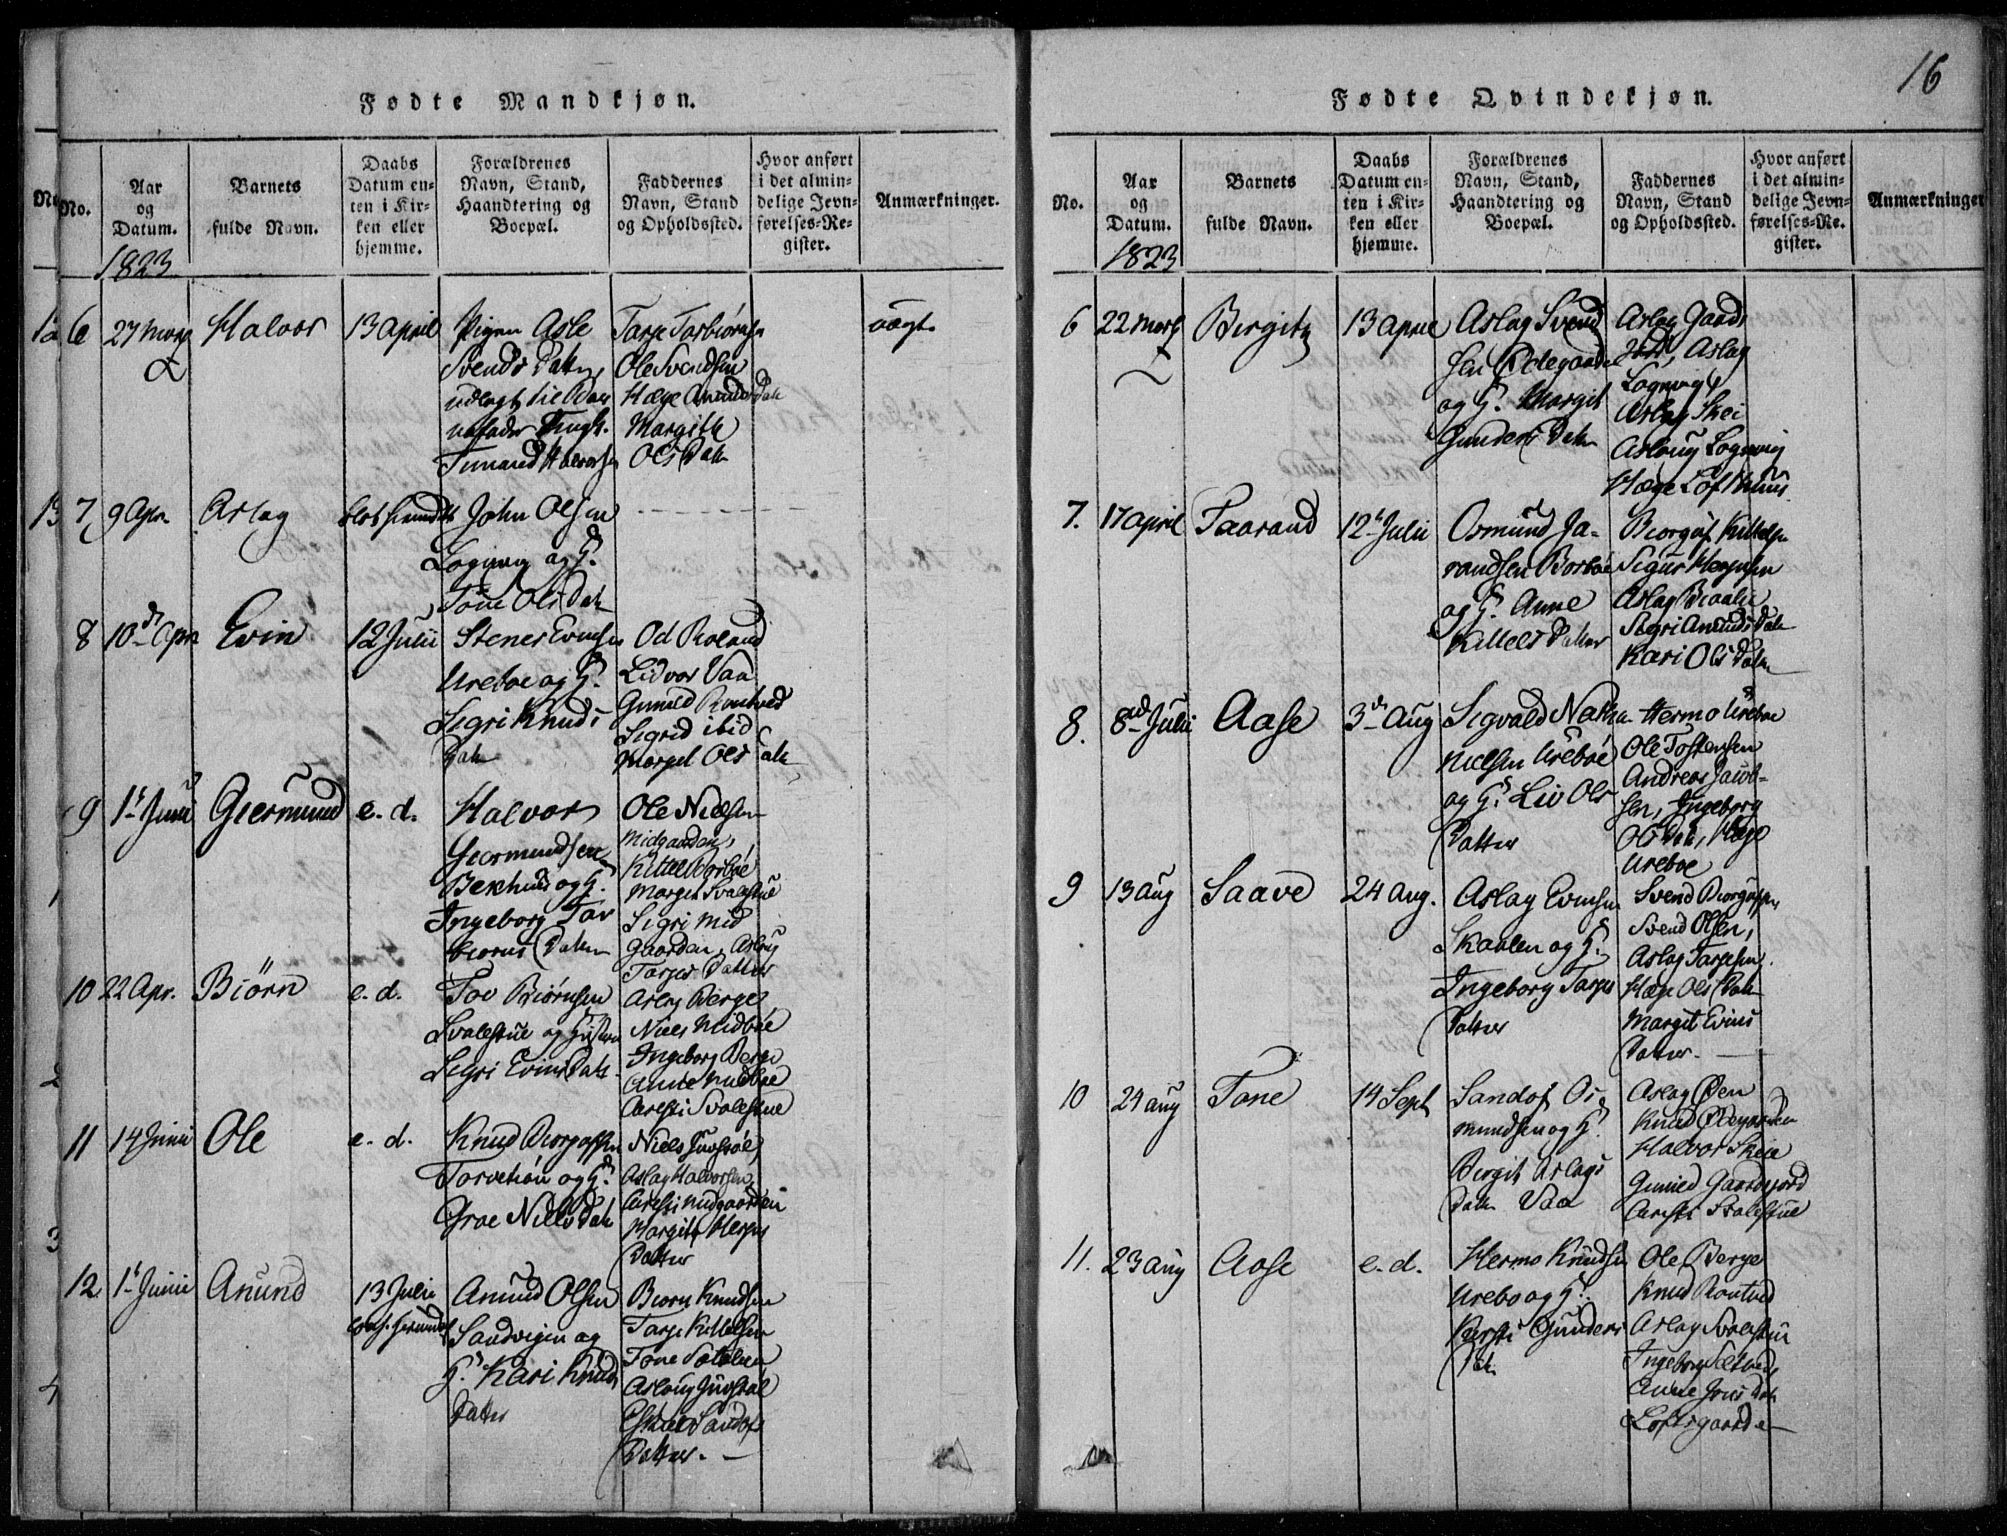 16
Fødte Mandkjøn.
No.
Aar
og
Datum.
1823
Barnets
fulde Navn.
Daabs
Datum en-
ten i Kir-
ken eller
hjemme.
Forældrenes
Navn, Stand,
Haandtering og
Boepæl.
Faddernes
Navn, Stand
og Opholdssted.
Hvor anført
i det almin-
delige Jevn-
førelses-Re-
gister.
Anmærkninger.
6 27 Halvor 13 April
Pigen Asle
Svends Datter
udlagt til Bar
nefader
Halvorsen
Tarje Torbiørnsn
Ole Svendsen
Hæge Amunds Datt
Margith
Ols Datt
uægt
7 9 Apr. Aslag
John Olsen
Lognvig og H.
Tone Ols Datt
8 10 Apr Evin 12 Julii
Stener Evensn
Ureboe og H.
Sigri Knuds
Datt
Od Roland
Lidvor Vaa
Gunild Rontved
Sigrid ibid
Margit Ols Datt
9 1 Junii Giermund e. d.
Halvor
Giermundsen
Bekhuus og H.
Ingeborg Tov
biørns Datter
Ole Nielsen
Midgaarden,
Kittel Borboe
Margit Svalestue
Sigri Mid
gaarden, Asloug
Tarjes Datter
10 22 Apr. Biörn e. d.
Tov Biörnsen
Svalestue og Hustru
Sigri Evins Datt.
Aslag Berge
Niels Midboe
Ingeborg Berge
Anne Midboe
Kersti Svalestue
11 14 Junii Ole e. d.
Knud Biorgofsen
Torvetiön og H.
Groe Niels Datt
Niels Juvstöl
Aslag Halvorsen,
Kersti Midgaarden
Margit Herjus
Datter
12 1 Junii Anund 13 Julii
Amund Olsen
Sandvigin og
H. Kari Knuds
Datter
Biorn Knudsen
Tarje Kittelsen
Tone
Aslaug Juvstöl
Sandofs
Datter.
Fødte Qvindekjøn.
No.
Aar
og
Datum.
1823
Barnets
fulde Navn.
Daabs
Datum en-
ten i Kir-
ken eller
hjemme.
Forældrenes
Navn, Stand,
Haandtering og
Boepæl.
Faddernes
Navn, Stand
og Opholdssted.
Hvor anført
i det almin-
delige Jevn-
førelses-Re-
gister.
Anmærkninger
6 22 Marts Birgith 13 April
Aslag Svend
sen Ødegaarden
og H. Margit
Gunders Datter
Aslag Gaards
jord, Aslag
Lognvig
Aslag Skei
Asloug Lognvig
Hæge Lofthuus
7. 17 April Taarand 12 Julii
Osmund Ta-
randsen Borboe
og H. Anne
Kittels Datter
Biorguf Kittelsn
Sigur Herjusen
Aslag Braalie
Sigri Amunds Datt
Kari Ols Datter
8. 8 Julii Aase 3 Aug
Sigvald Natha-
nielsen Ureboe
og H. Liv Ols
Datter
Hermo Ureboe
Ole Tostensen
Andreas Jacob-
sen, Ingeborg
Ols Dat, Hæge
Ureboe
9 13 Aug Saave 24 Aug.
Aslag Evensen
Skaalen og H.
Ingeborg Tarjes
Datter
Svend Biorgofsen
Svend Olsen,
Aslag Tarjesen.
Hæge Ols Datt
Margit Evins
Datter.
10 24 Aug Tone 14 Sept
Sandof Os-
mundsen og H.
Birgit Aslags
Datt Vaa
Aslag Øen
Knud Ødegaarden
Halvor Skeie
Gunild Gaardsjord
Kersti Svalestue
11. 23 Aug Aase e. d.
Hermo Knudsen
Urebo og H.
Kersti Gunders
Datt
Ole Berge
Knud Rontved
Aslag Svalestue
Ingeborg
Anne Jons Datt
Loftsgaarden